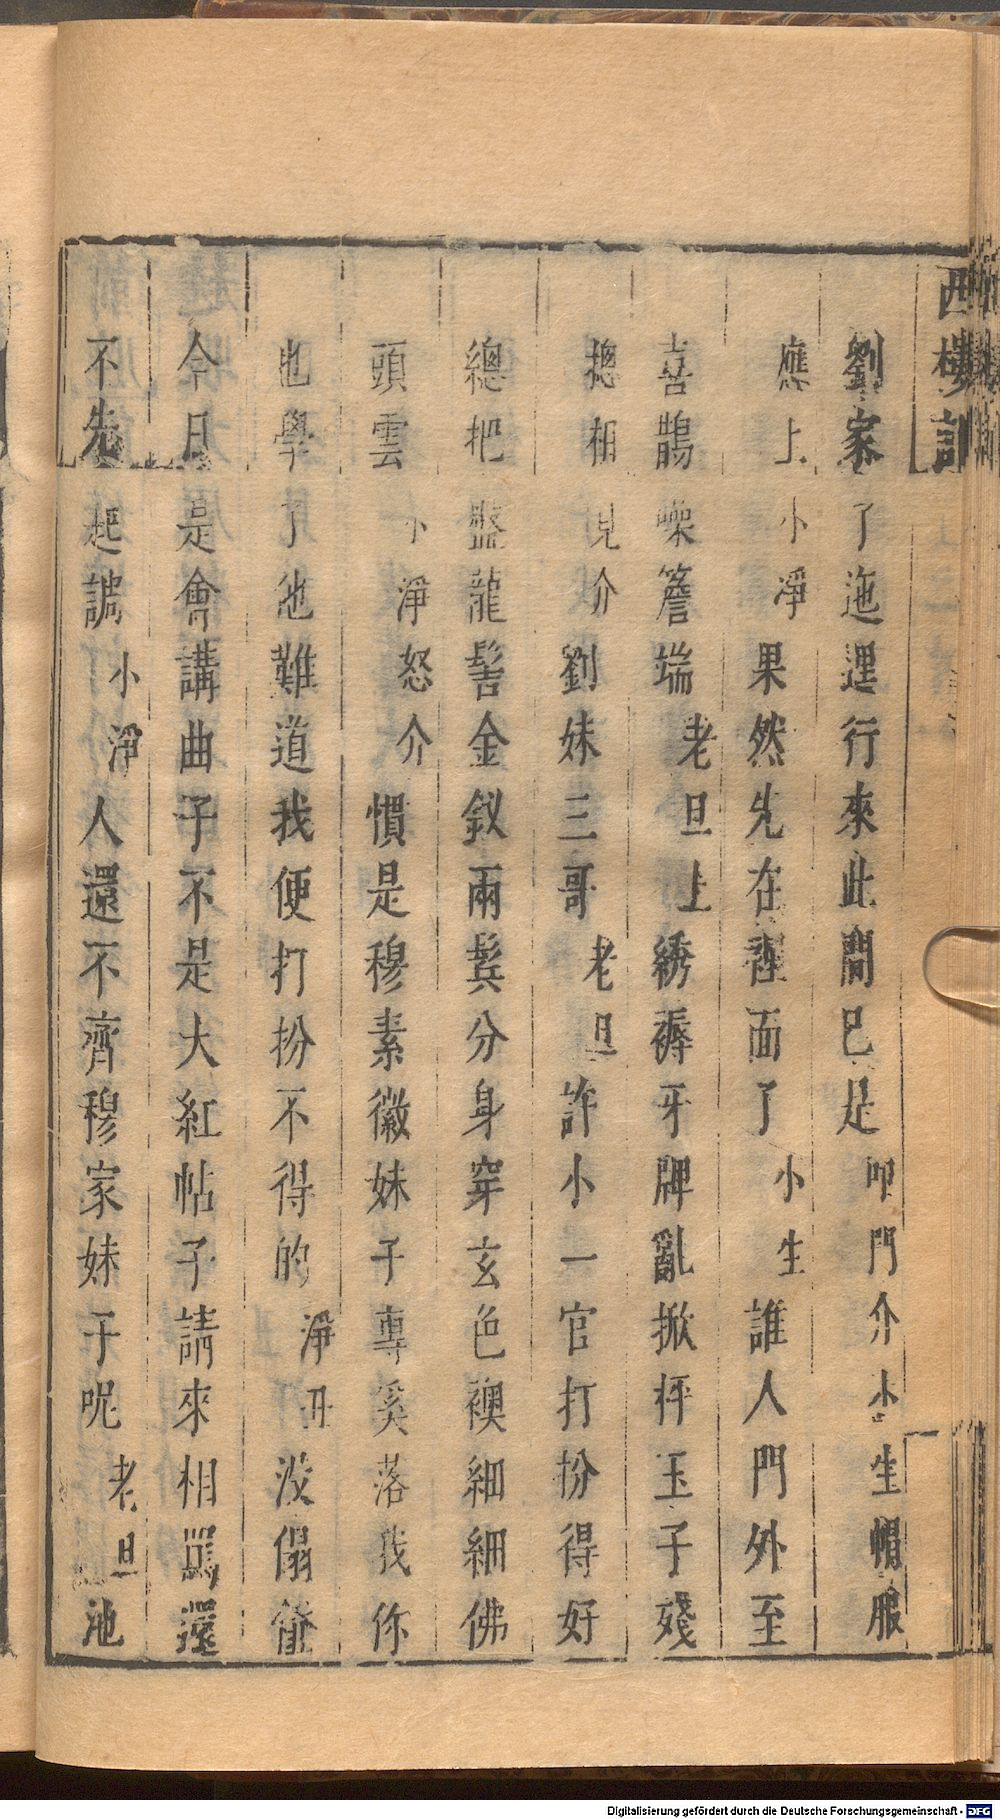 西樓記
劉家了迤逦行來此間已是叩門介小生帽服
應上小淨果然先在裡面了小生誰人門外至
喜鵲噪簷端老旦上綉褥牙牌亂掀枰玉子殘
摠相見介劉妹三哥老旦許小一官打扮得好
總把盤龍髻金釵兩鬓分身穿玄色襖細細佛
頭雲小淨怒介慣是穆素徽妹子專奚落我你
也學了他難道我便打扮不得的淨丑没傝
今日是會講曲子不是大紅帖子請來相罵還
不先起調小淨人還不齊穆家妹子呢老旦池
Digitalisierung gefördert durch die Deutsche Forschungsgemeinschaft - DFG